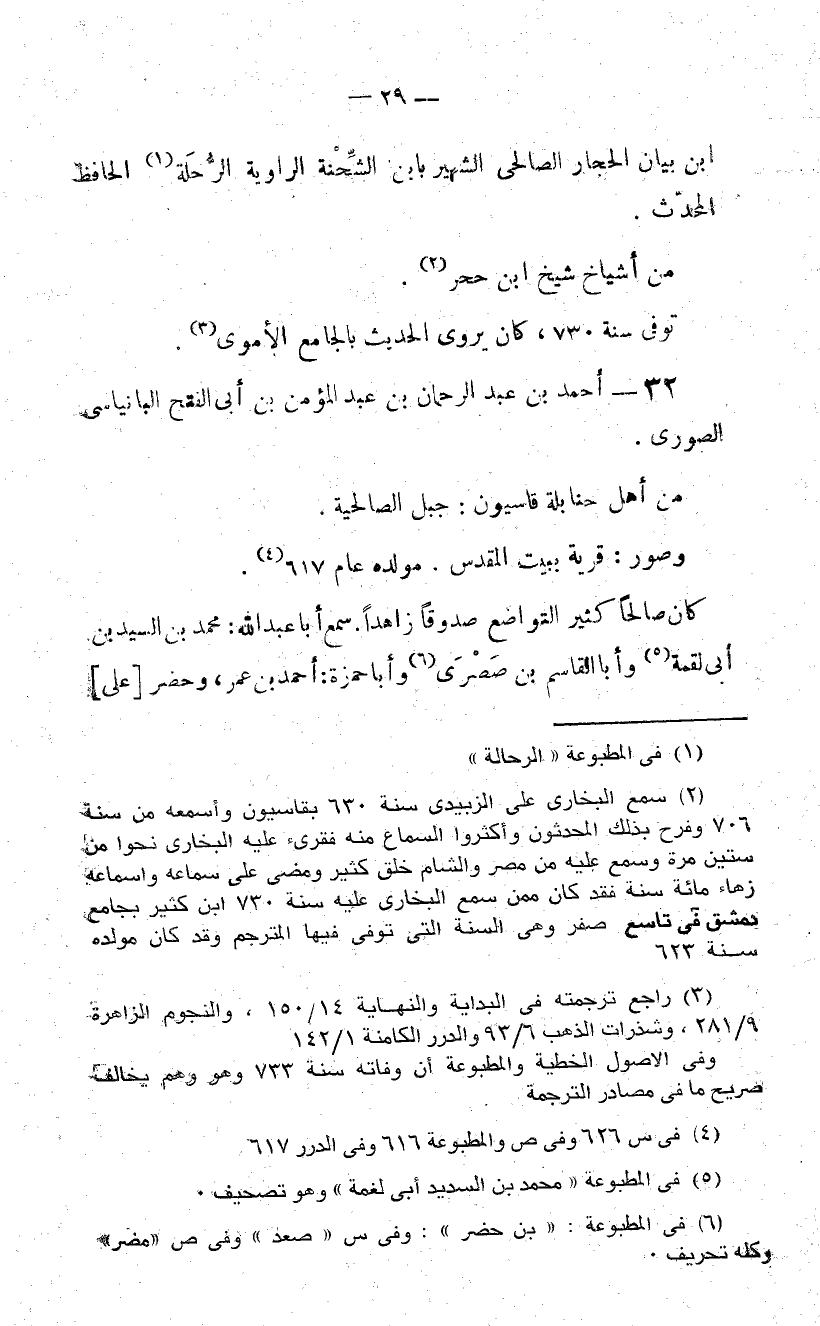 — ٢٩ —
ابن بيان الحجار الصالحى الشهير بابن الشِّحْنة الراوية الرُّحلَة(١) الحافظ
المحدّث .
من أشياخ شيخ ابن حجر(٢) .
توفى سنة ٧٣٠ ، كان يروى الحديث بالجامع الأموى(٣) .
٣٢ — أحمد بن عبد الرحمان بن عبد المؤمن بن أبى الفتح البانياسى
الصورى .
من أهل حنابلة قاسيون : جبل الصالحية .
وصور : قرية ببيت المقدس . مولده عام ٦١٧(٤) .
كان صالحاً كثير التواضع صدوقاً زاهداً . سمع أبا عبدالله : محمد بن السيد بن
أبى لقمة(٥) وأبا القاسم بن صَصْرَى(٦) وأبا حمزة : أحمد بن عمر ، وحضر [على]
(١) فى المطبوعة « الرحالة »
(٢) سمع البخارى على الزبيدى سنة ٦٣٠ بقاسيون وأسمعه من سنة
٧٠٦ وفرح بذلك المحدثون وأكثروا السماع منه فقرىء عليه البخارى نحوا من
ستين مرة وسمع عليه من مصر والشام خلق كثير ومضى على سماعه واسماعه
زهاء مائة سنة فقد كان ممن سمع البخارى عليه سنة ٧٣٠ ابن كثير بجامع
دمشق فى تاسع صفر وهى السنة التى توفى فيها المترجم وقد كان مولده
سنة ٦٢٣
(٣) راجع ترجمته فى البداية والنهاية ١٥٠/١٤ ، والنجوم الزاهرة
٢٨١/٩ ، وشذرات الذهب ٩٣/٦ والدرر الكامنة ١٤٢/١
وفى الاصول الخطية والمطبوعة أن وفاته سنة ٧٣٣ وهو وهم يخالف
صريح ما فى مصادر الترجمة
(٤) فى س ٦٢٦ وفى ص والمطبوعة ٦١٦ وفى الدرر ٦١٧
(٥) فى المطبوعة « محمد بن السديد أبى لغمة » وهو تصحيف ٠
(٦) فى المطبوعة : « بن حضر » : وفى س « صعد » وفى ص «مضر»
وكله تحريف ٠